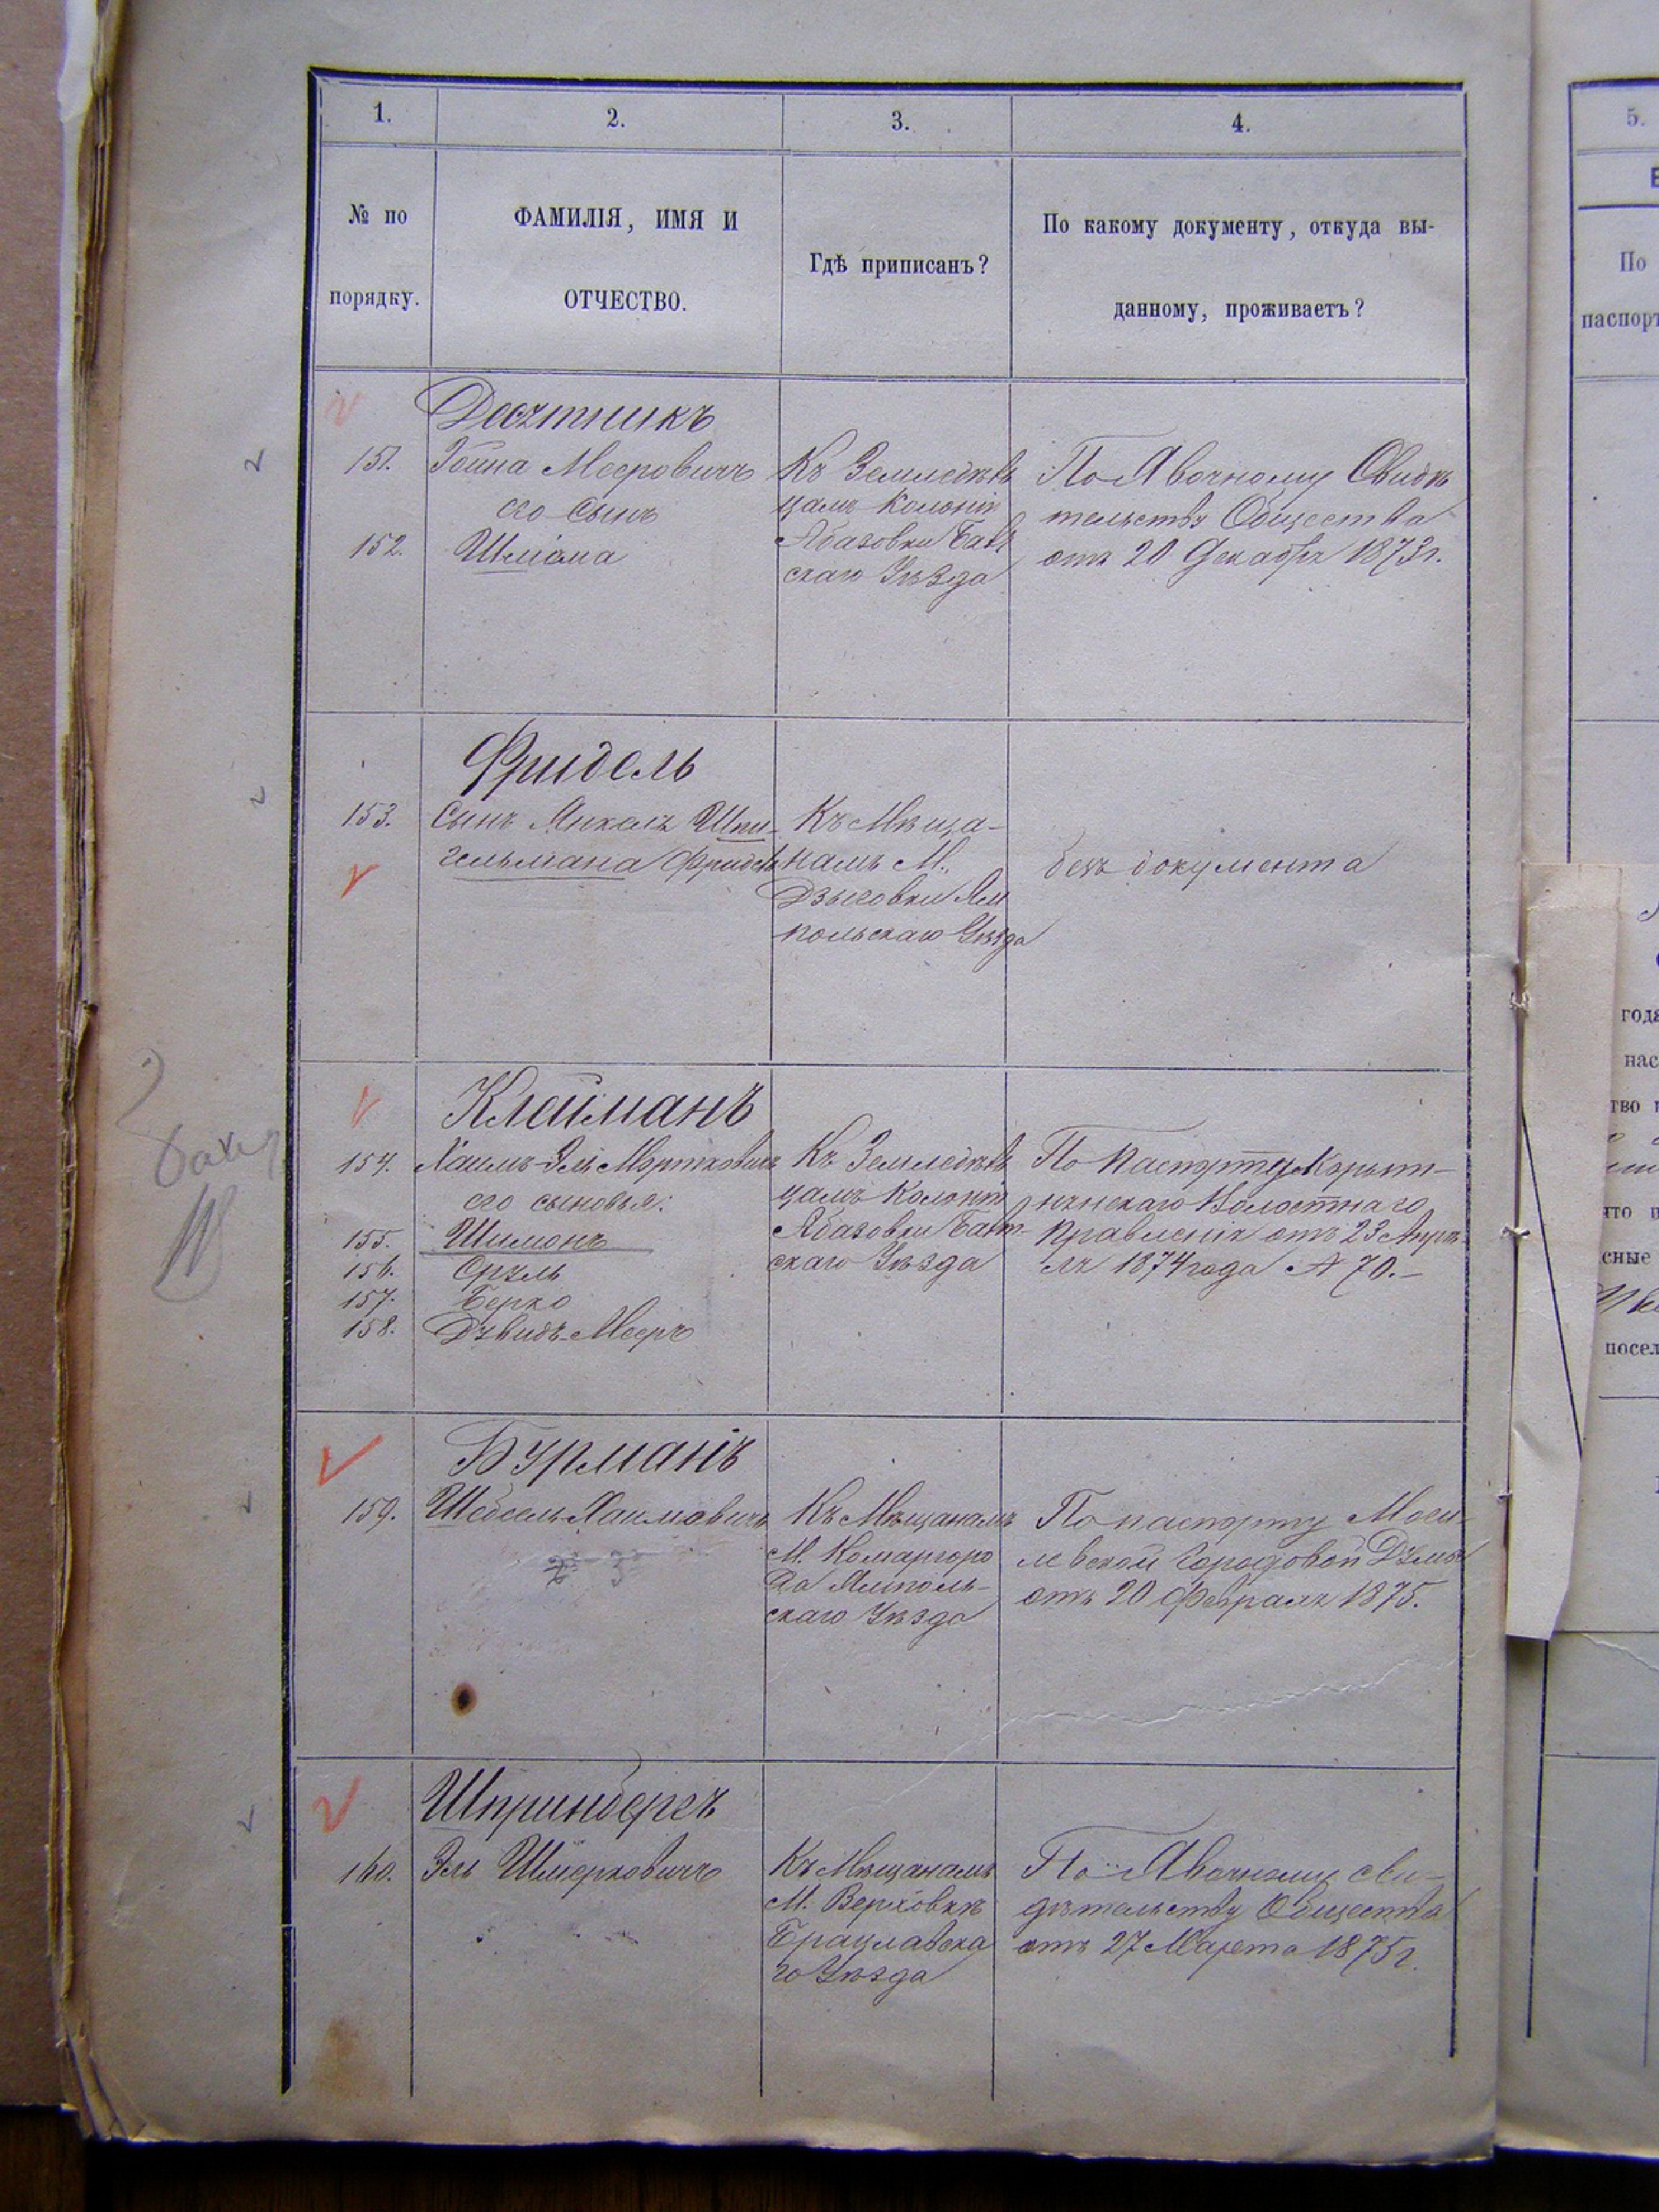 1. 2. 3. 4.
№ по порядку.
ФАМИЛІЯ, ИМЯ И
ОТЧЕСТВО.
Гдѣ приписанъ?
По какому документу, откуда вы-
данному, проживаетъ?
Десятникъ
151. Іойна Мееровичъ
его сынъ
152. Шліома
Къ Земледѣль
цамъ Колоніи
Абазовки Балт
скаго Уѣзда
По Явочному Свидѣ
тельству Общества
отъ 20 Декабря 1873г.
Фридель
153. Сынъ Янкеля Шпи-
гельмана Фридель
Къ Мѣща-
намъ М.
Дзыговки Ям
польскаго Уѣзда
безъ документа
Клейманъ
154. Хаимъ-Эль Мортковичъ
его сыновья:
155. Шимонъ
156. Сруль
157. Берко
158. Дувидъ-Мееръ
Къ Земледѣль
цамъ Колоніи
Абазовки Балт-
скаго Уѣзда
По Паспорту
Волостнаго
Правленія отъ 23 Апрѣ-
ля 1874 года № 70.-
Бурманъ
159. Шебсель Хаимовичъ
Къ Мѣщанамъ
М. Комаргоро
да Ямполь-
скаго Уѣзда
По паспорту Моги-
левской Городовой Думы
отъ 20 Февраля 1875.
Шпринбергъ
160. Эль Шмерковичъ
Къ Мѣщанамъ
М. Верховкѣ
Брацлавска
го Уѣзда
По Явочному сви-
дѣтельству Общества
отъ 27 Марта 1875г.
5.
По
паспорт
года
нас
тво
что
сные
посел